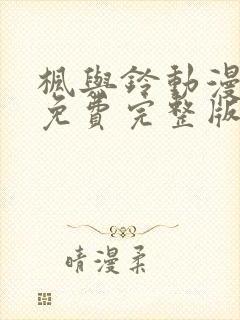 楓與鈴動漫
免費完整版
晴漫柔